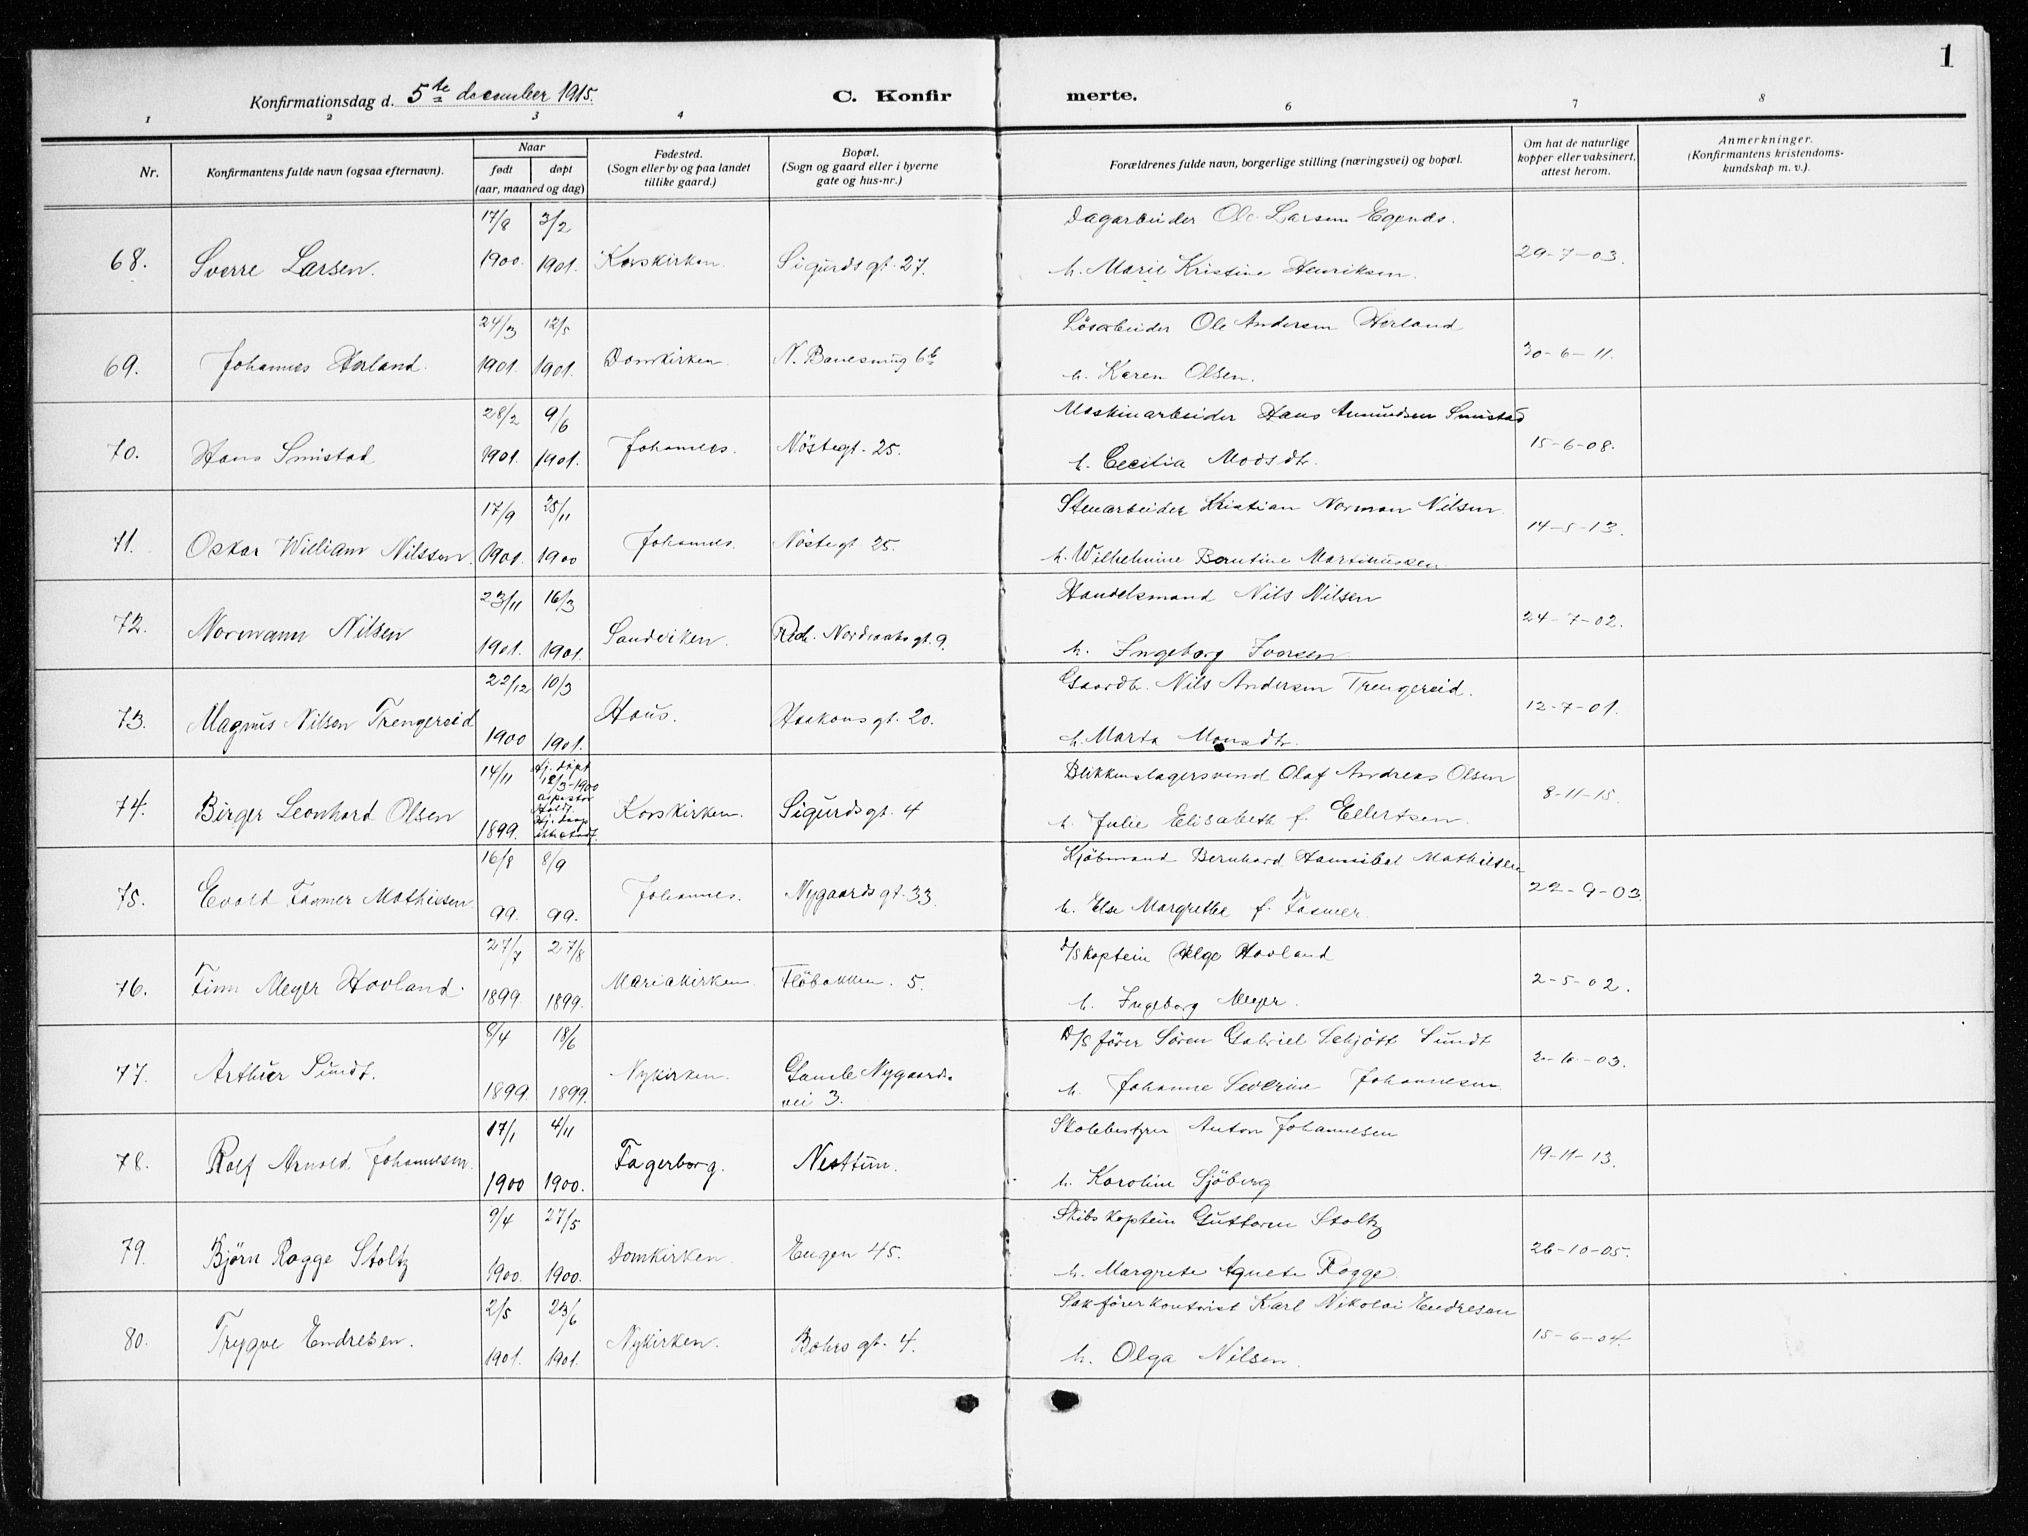 1
Konfirmationsdag d. 5te december 1915.
C. Konfir merte.
1 2 3 4 6 7 8
Nr.
Konfirmantens fulde navn (ogsaa efternavn).
Naar
født døpt
(aar, maaned og dag)
Fødested.
(Sogn eller by og paa landet
tillike gaard.)
Bopæl.
(Sogn og gaard eller i byerne
gate og hus-nr.)
Forældrenes fulde navn, borgerlige stilling (næringsvei) og bopæl.
Om hat de naturlige
kopper eller vaksinert,
attest herom.
Anmerkninger.
(Konfirmantens kristendoms-
kundskap m. v.).
17/8 3/2 Dagarbeider Ole Larsen
68. Sverre Larsen. 1900. 1901. Korskirken. Sigurdsgt. 27. h. Marie Kristine Henriksen. 29-7-03.
24/3 12/5 Løsarbeider Ole Andersen Herland
69. Johannes Herland. 1901. 1901. Domkirken. N. 6b h. Karen Olsen. 30-6-11.
28/2 9/6 Maskinarbeider Hans Amundsen Smistad
70. Hans Smistad 1901. 1901. Johannes. Nöstegt. 25. h. Cecilia Madsdtr. 15-6-08.
17/9 25/11 Stenarbeider Kristian Norman Nilsen
71. Oskar William Nilssen. 1901. 1900 Johannes. Nöstegt 25. h. Wilhelmine Berntine Martinussen 14-5-13.
23/11 16/3 Handelsmand Nils Nilsen
72. Normann Nilsen 1901. 1901. Sandviken. Rich. Nordraaks gt. 9. h. Ingeborg Iversen 24-7-02.
22/12 10/3 Gaardbr. Nils Andersen Trengereid.
73. Magnus Nilsen Trengereid 1900 1901. Haus. Haakonsgt. 20. h. Marta Monsdtr. 12-7-01.
14/11 Hj. døpt 12/3-1900 Blikkenslagersvend Olaf Andreas Olsen
74. Birger Leonhard Olsen 1899. Korskirken. Sigurdsgt. 4 h. Julie Elisabeth f. Ellertsen. 8-11-15.
16/8 8/9 Kjöbmand Bernhard Hannibal Mathiesen
75. Evald Fasmer Mathiesen 99. 99. Johannes. Nygaardsgt. 33. h. Else Margrethe f. Fasmer. 22-9-03.
27/7 27/8 D/S kaptein Helge Hovland
76. Finn Meyer Hovland. 1899. 1899. Mariakirken. Flöbakken. 5. h. Ingeborg Meyer. 2-5-02.
8/4 18/6 D/S förer Sören Gabriel Schjött Sundt
77. Arthur Sundt. 1899. 1899. Nykirken. Gamle Nygaards-
vei 3. h. Johanne Severine Johannesen 2-6-03.
17/1 4/11 Skolebestyrer Anton Johannesen
78. Rolf Arnold Johannesen. 1900 1900. Fagerborg. Nesttun. h. Karoline Sjöberg 19-11-13.
9/4 27/5 Skibskaptein Guttorm Stoltz
79. Björn Rogge Stoltz 1900. 1900. Domkirken. Engen 45. h. Margrete Agnete Rogge 26-10-05.
2/5 23/6 Sakförerkontorist Karl Nikolai Endresen
80. Trygve Endresen. 1901. 1901. Nykirken. Bohrsgt. 4. h. Olga Nilsen. 15-6-04.